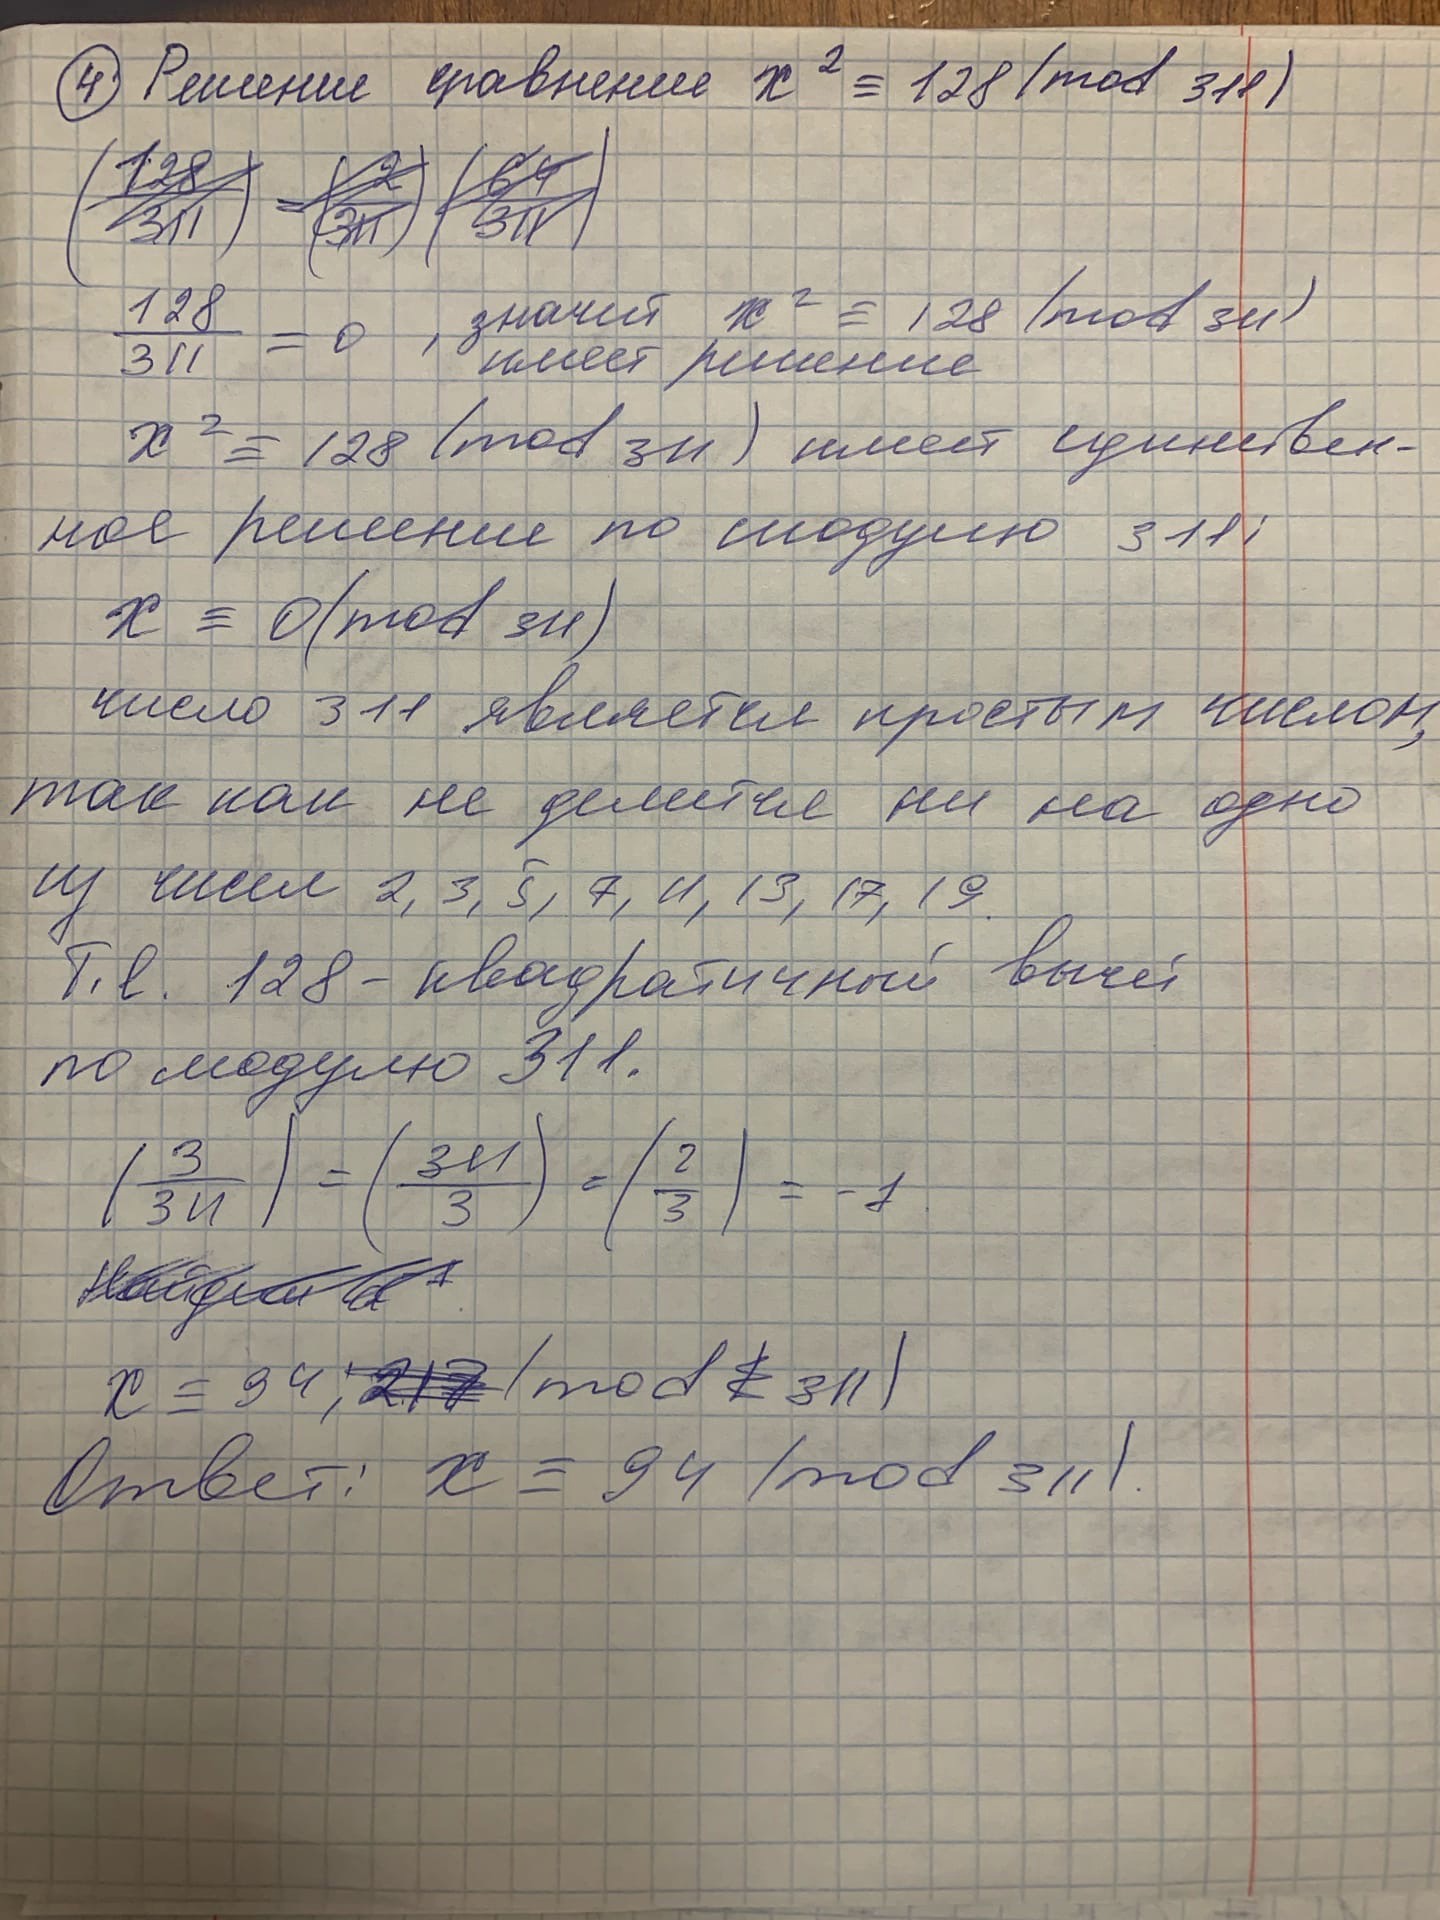 4) Решение сравнение x² ≡ 128 (mod 311)
(128/311) = (2/311) (64/311)
128/311 = 0, значит x² ≡ 128 (mod 311)
имеет решение
x² ≡ 128 (mod 311) имеет единствен-
ное решение по модулю 311:
x ≡ 0 (mod 311)
число 311 является простым числом,
так как не делится ни на одно
из чисел 2, 3, 5, 7, 11, 13, 17, 19.
Т.е. 128 - квадратичный вычет
по модулю 311.
(3/311) = (311/3) = (2/3) = -1
Найдем
x ≡ 94, 217 (mod 311)
Ответ: x ≡ 94 (mod 311).